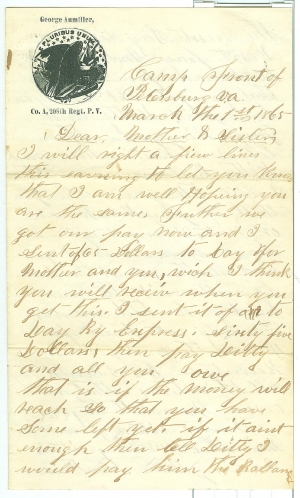 George Aumiller,
E PLURIBUS UNUM
Co. A, 208th Regt. P. V.
Camp Front of
Petersburg Va
March the 1st 1865
Dear, Mother & Sister
I will right a fiew lines
this eavening to let you know
that I am well Hopeing you
are the same. further we
got our pay now and I
Sent 65 Dollars to Day for
Mother and you, wich I think
you will receiv when you
get this. I sent it of to
Day By Express. Sixty five
Dollars, then pay
and all you owe
that is if the money will
reach So that you have
Some left yet. if it aint
enough then tell I
would pay him the Ballance